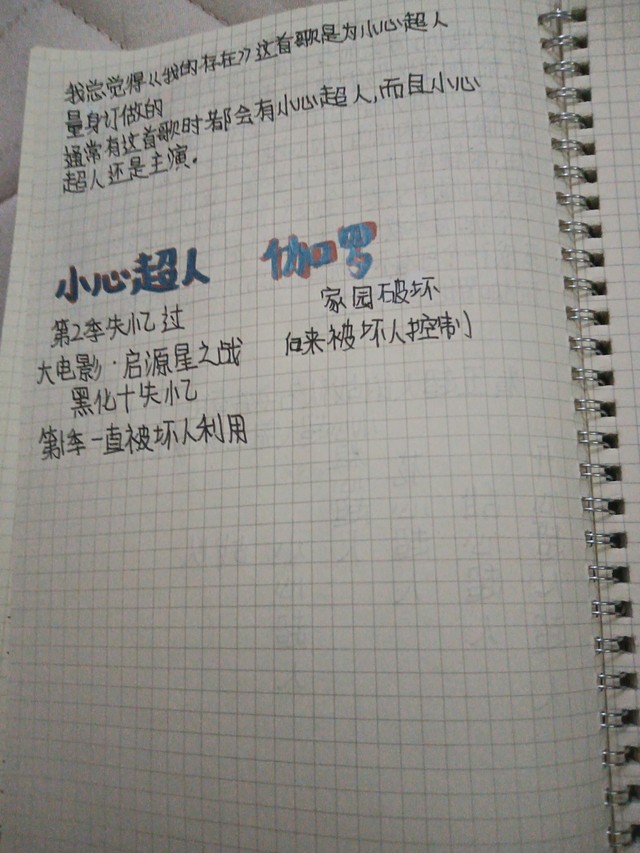 我总觉得《我的存在》这首歌是为小心超人
量身订做的
通常有这首歌时都会有小心超人,而且小心
超人还是主演。
小心超人
第2季失忆过
大电影·启源星之战
黑化+失忆
第1季一直被坏人利用
伽罗
家园破坏
后来被坏人控制